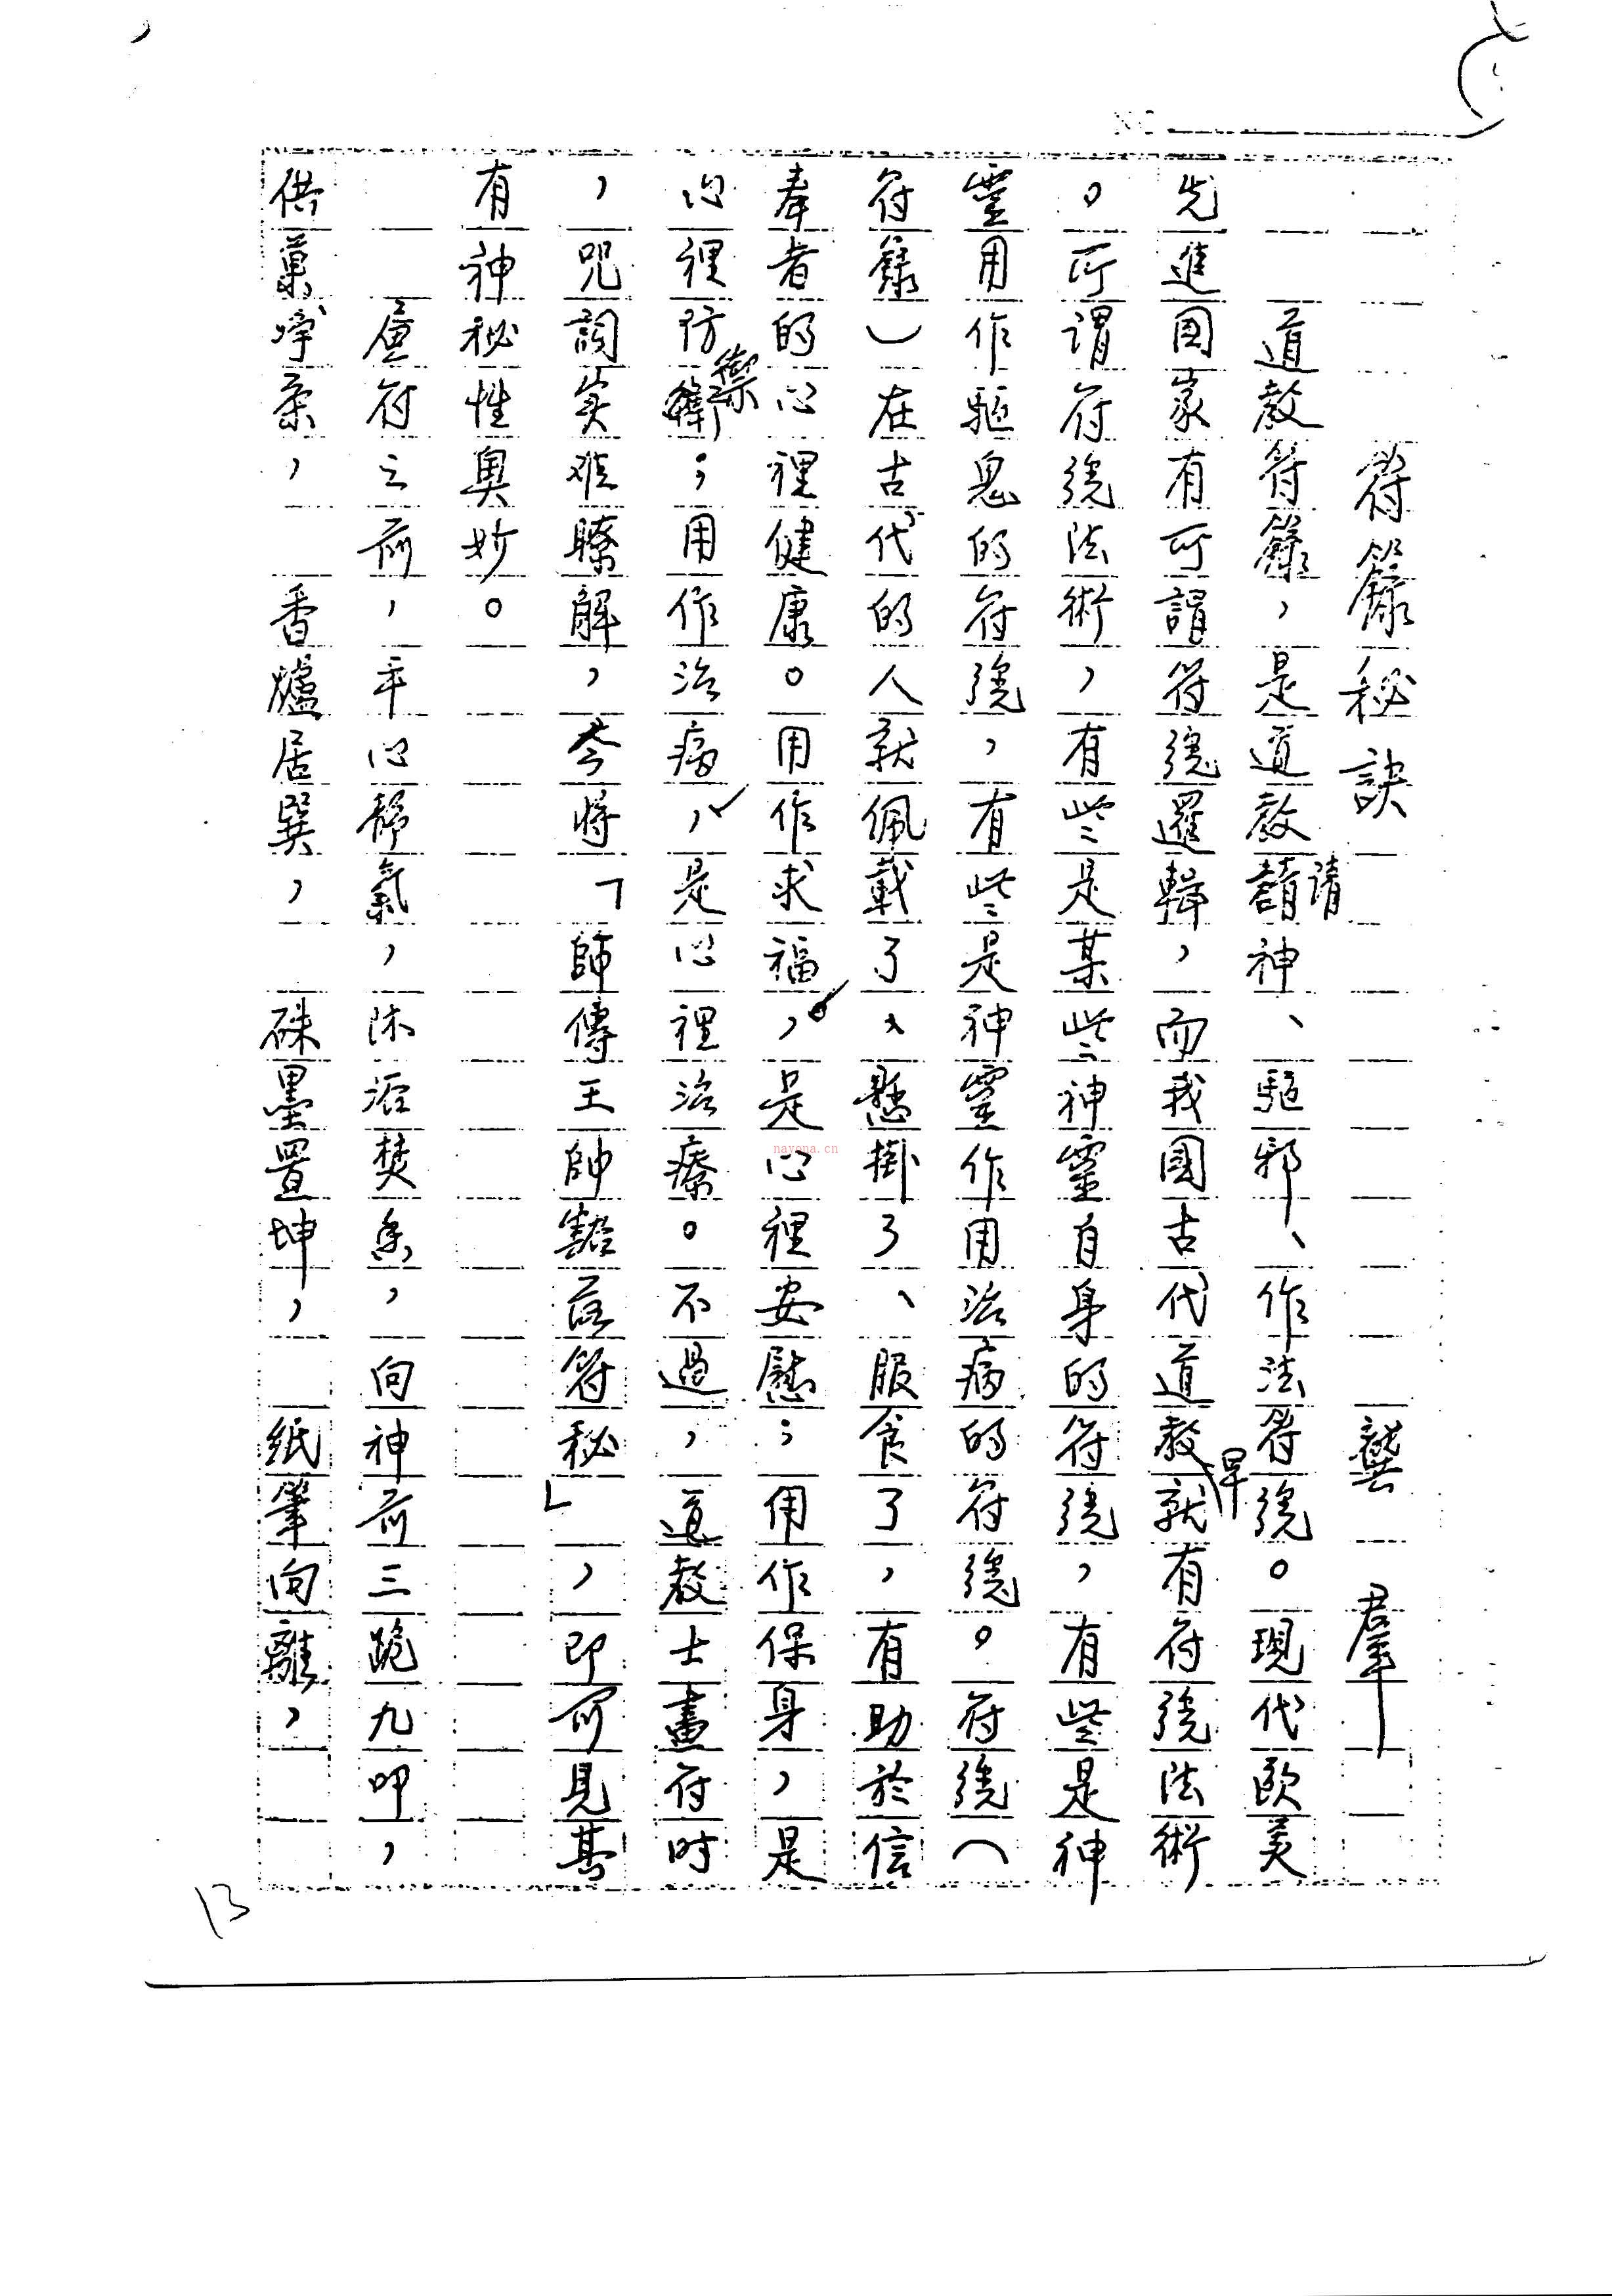 符籙秘訣 龔羣
道教符籙，是道教請神、驅邪、作法符號。現代歐美
先進國家有所謂符號邏輯，而我國古代道教早就有符號法術
。所謂符號法術，有些是某些神靈自身的符號，有些是神
靈用作驅鬼的符號，有些是神靈作用治病的符號。符號（
符籙）在古代的人就佩戴了、懸掛了、服食了，有助於信
奉者的心裡健康。用作求福，是心裡安慰；用作保身，是
心裡防禦；用作治病，是心裡治療。不過，道教士畫符时
，咒詞实难瞭解，今将「師傳王帥豁落符秘」，即可見其
有神秘性奥妙。
畫符之前，平心靜氣，沐浴焚香，向神前三跪九叩，
供菓淨茶，香爐居巽，硃墨置坤，紙筆向離，
13
nayona.cn